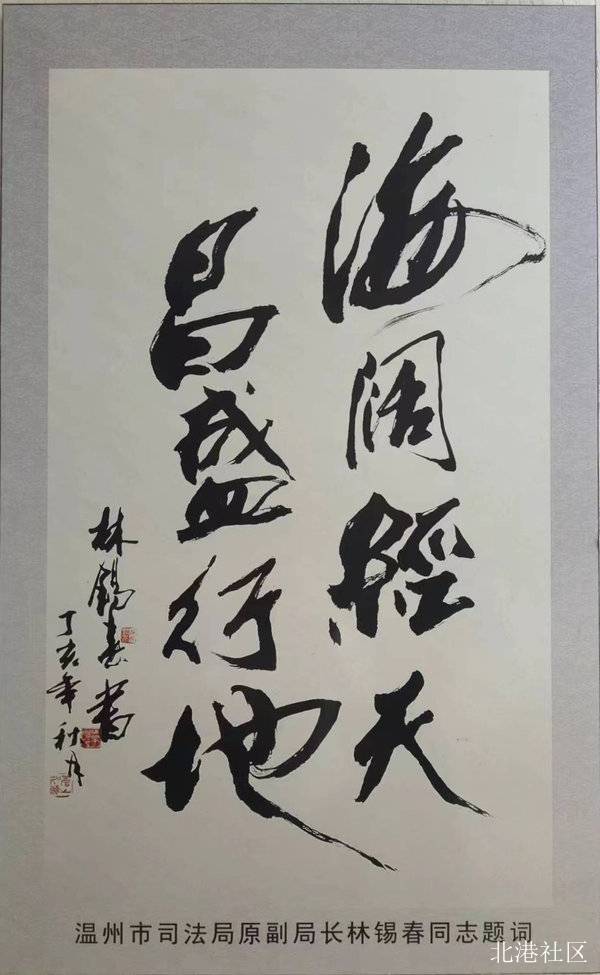 海阔經天
昌盛行地
林錫春書
丁亥年秋月
温州市司法局原副局长林锡春同志题词
北港社区